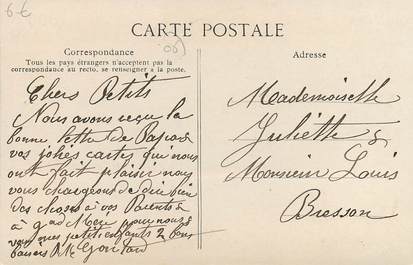 6€
CARTE POSTALE
(06)
Correspondance
Tous les pays étrangers n'acceptent pas la
correspondance au recto, se renseigner à la poste.
Adresse
Chers Petits
Nous avons reçu la
bonne lettre de Papa &
vos jolies cartes qui nous
ont fait plaisir nous
vous chargeons de dire bien
des choses à vos Parents &
à gd Mère pour nous &
vous mes petits enfants 2 bons
baisers
Mademoiselle
Juliette &
Monsieur Louis
Bresson